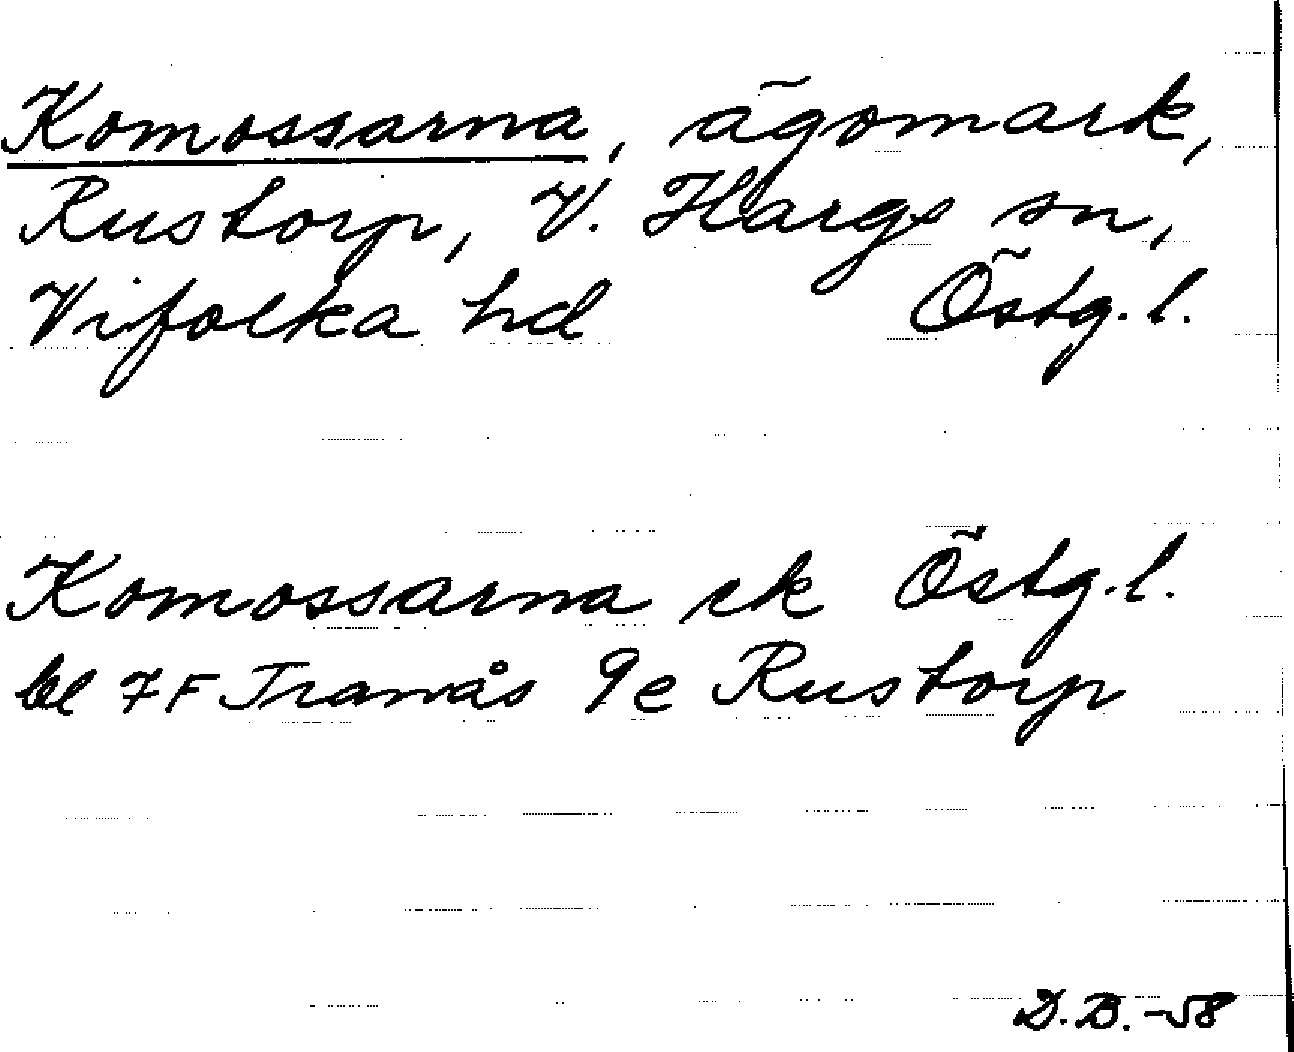 Komossarna, ägomark,
Rustorp, V. Hargs sn,
Vifolka hd Östg. l.
Komossarna ek Östg. l.
bl 7F Tranås 9e Rustorp
D.B.-58